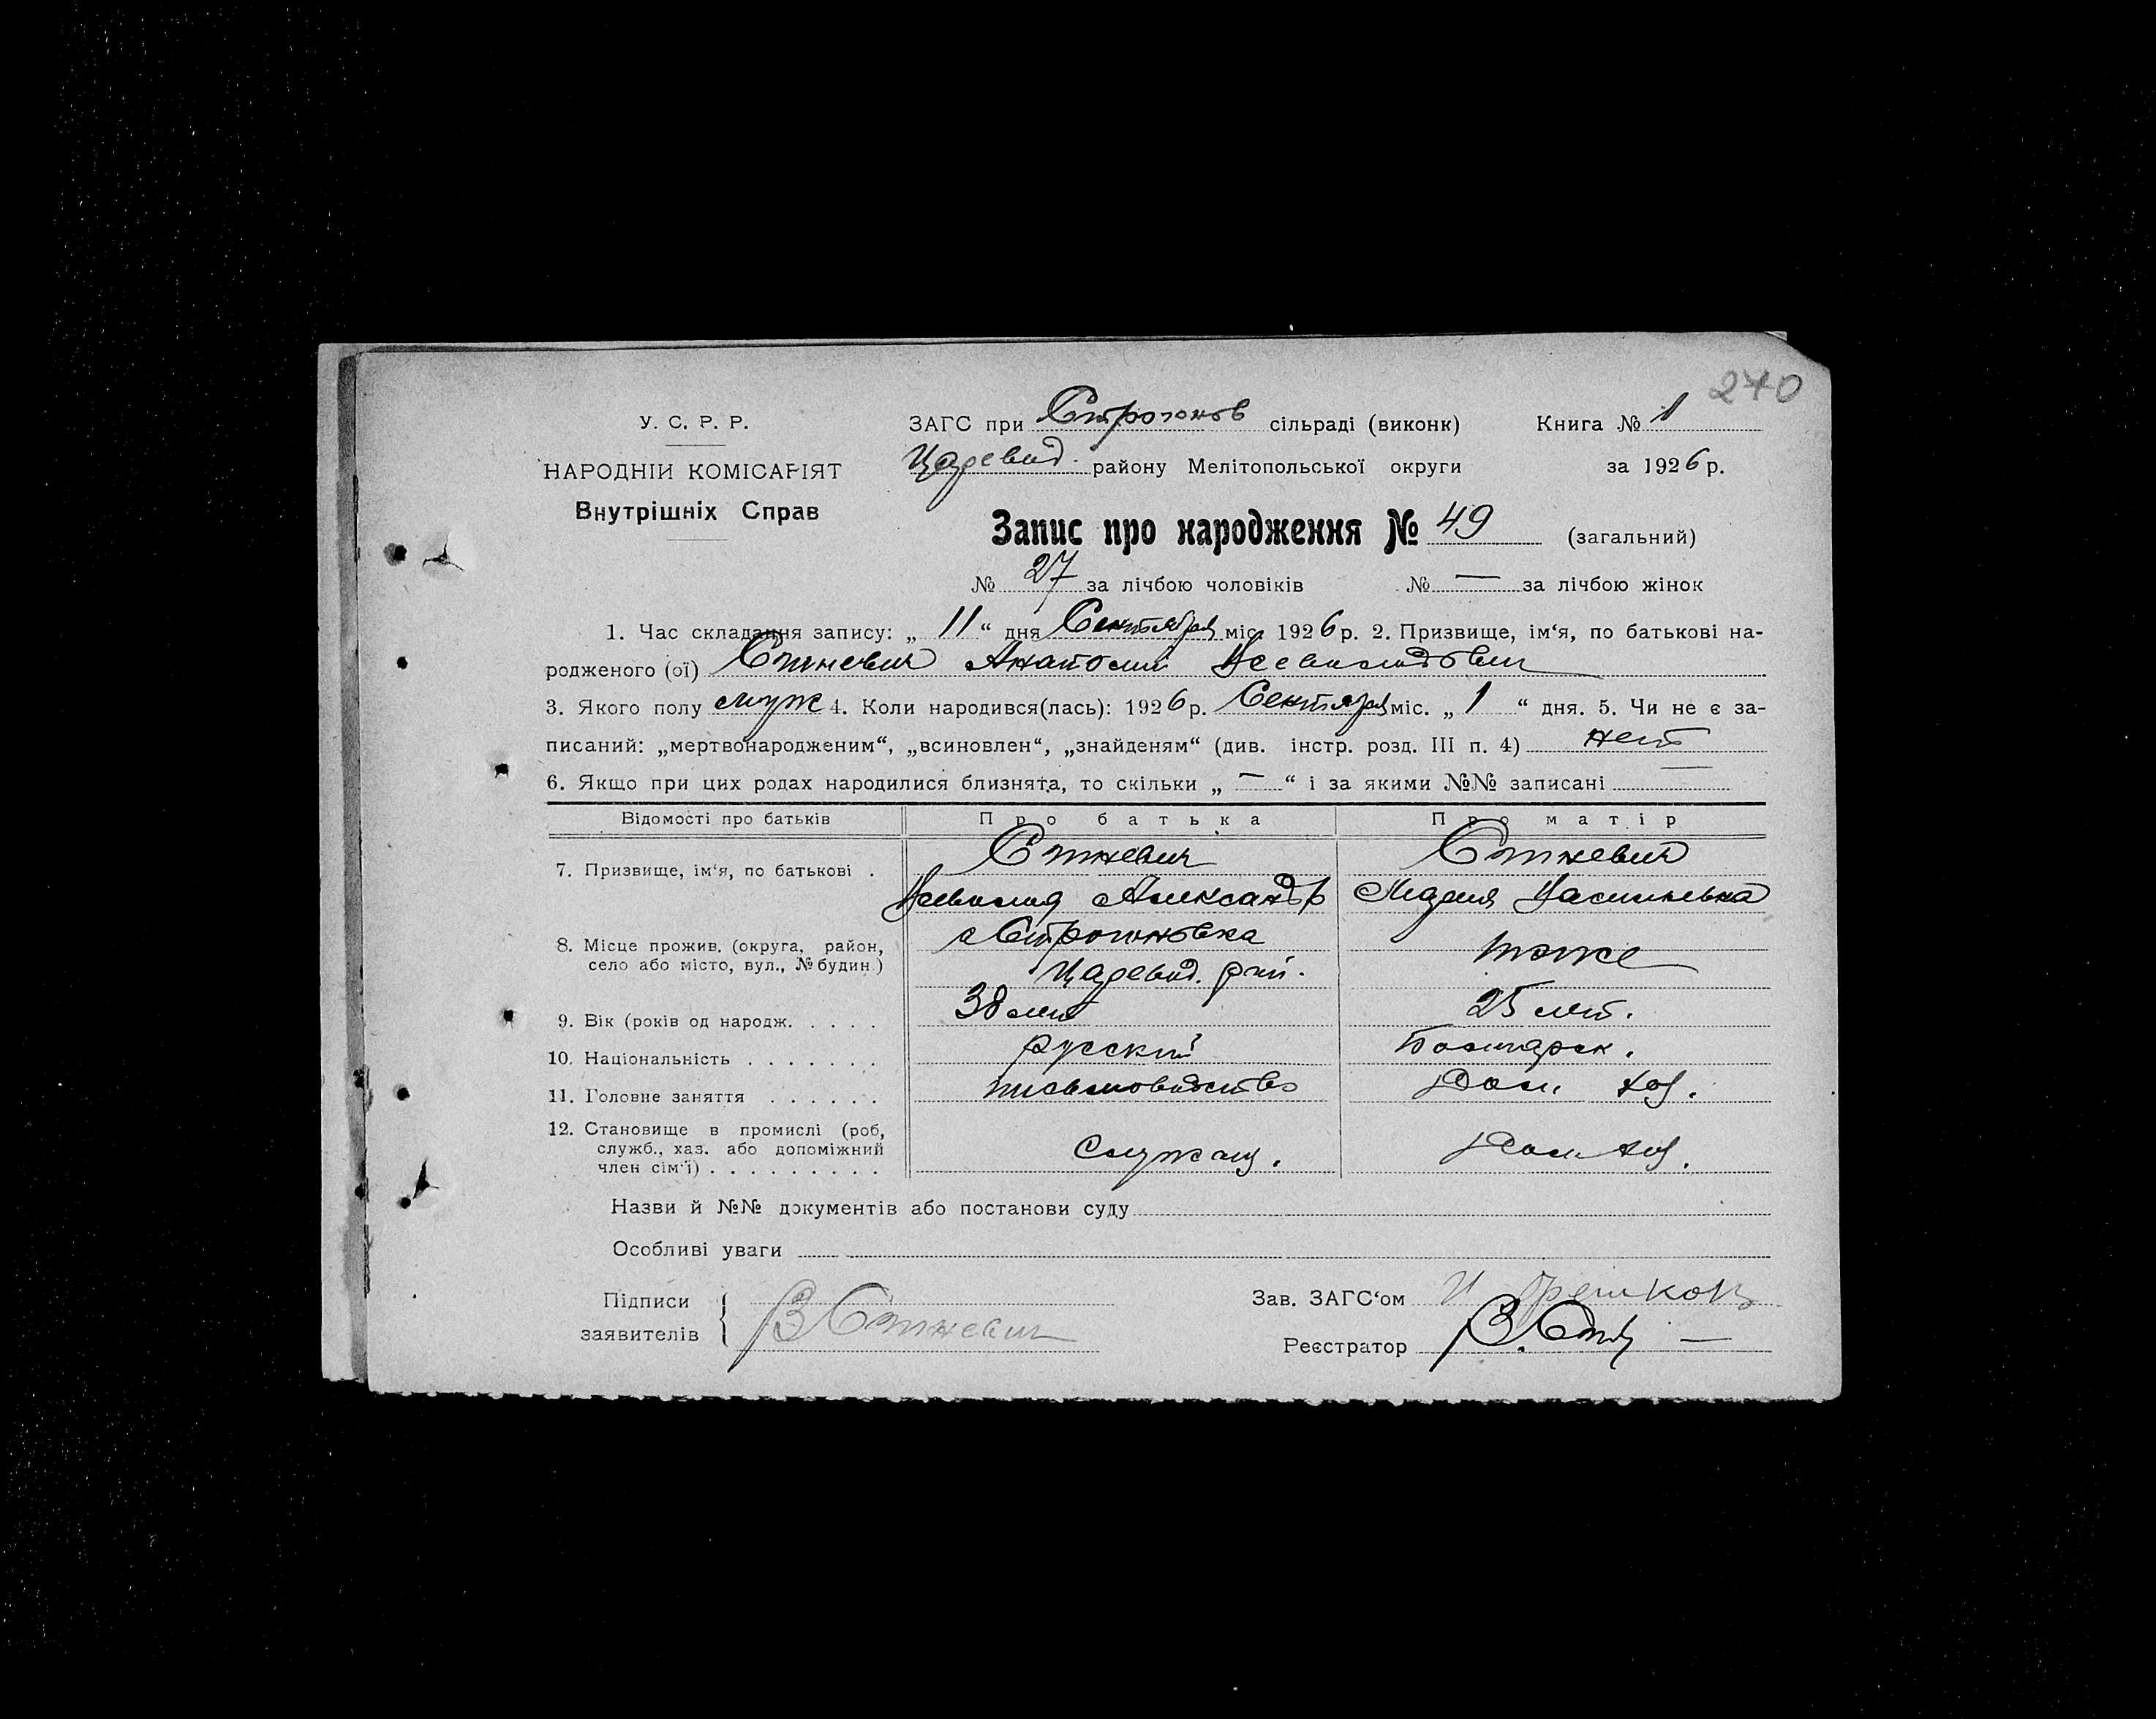 270
У. С. Р. Р.
НАРОДНІЙ КОМІСАРІЯТ
Внутрішніх Справ
ЗАГС при Строгонов сільраді (виконк) Книга № 1
Царевод. району Мелітопольської округи за 1926 р.
Запис про народження № 49 (загальний)
№ 27 за лічбою чоловіків № — за лічбою жінок
1. Час складання запису: „ 11 “ дня Сентября міс. 1926 р. 2. Призвище, ім‘я, по батькові на-
родженого (ої) Анатолий Всеволодович
3. Якого полу муж 4. Коли народився(лась): 1926 р. Сентября міс. „ 1 “ дня. 5. Чи не є за-
писаний: „мертвонародженим“, „всиновлен“, „знайденям“ (див. інстр. розд. III п. 4) нет
6. Якщо при цих родах народилися близнята, то скільки „ — “ і за якими №№ записані —
Відомості про батьків Про батька Про матір
7. Призвище, ім‘я, по батькові .
Всеволод Александр Мария Васильевна
8. Місце прожив. (округа, район,
село або місто, вул., № будин.)
с Строгоновка тоже
Царевод. рай.
9. Вік (років од народж. . . . . 38 лет 25 лет.
10. Національність . . . . . . . русский Болгарск.
11. Головне заняття . . . . . . письмоводство Дом. хоз.
12. Становище в промислі (роб,
служб., хаз. або допоміжний
член сім‘ї) . . . . . . . . . Служащ. Дом хоз.
Назви й №№ документів або постанови суду
Особливі уваги
Підписи
заявителів В
Зав. ЗАГС‘ом
Реєстратор В.